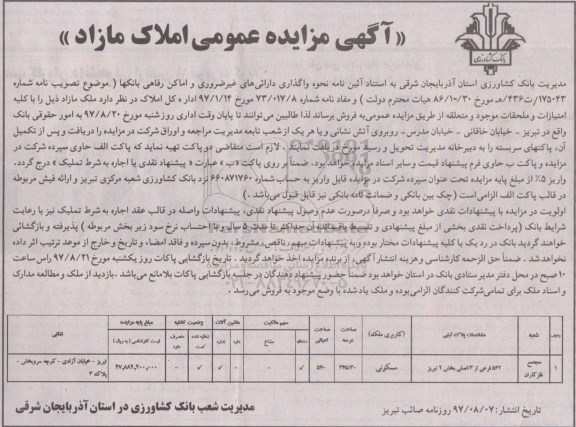 بانک کشاورزی
« آگهی مزایده عمومی املاک مازاد »
مدیریت بانک کشاورزی استان آذربایجان شرقی به استناد آئین نامه نحوه واگذاری دارائی‌های غیرضروری و اماکن رفاهی بانکها ( .موضوع تصویب نامه شماره
امتیازات و ملحقات موجود و متعلقه از طریق مزایده عمومی به فروش برساند لذا طالبین می‌توانند تا پایان وقت اداری روز شنبه مورخ ۹۷/۸/۲۰ به امور حقوقی بانک
واقع در تبریز - خیابان خاقانی - خیابان مدرس - روبروی آتش نشانی و یا هر یک از شعب تابعه مدیریت مراجعه و اوراق شرکت در مزایده را دریافت و پس از تکمیل
آن، پاکتهای سربسته را به دبیرخانه مدیریت تحویل و رسید مورخ دریافت نمایند . لازم است متقاضی دو پاکت تهیه نماید که پاکت الف حاوی سپرده شرکت در
مزایده و پاکت ب حاوی فرم پیشنهاد قیمت و سایر اسناد مزایده خواهد بود. ضمناً بر روی پاکت «ب» عبارت « پیشنهاد نقدی یا اجاره به شرط تملیک » درج گردد.
واریز ۵٪ از مبلغ پایه مزایده تحت عنوان سپرده شرکت در مزایده، قابل واریز به حساب شماره ۶۶۰۸۷۱۷۶۰ نزد بانک کشاورزی شعبه مرکزی تبریز و ارائه فیش مربوطه
در قالب پاکت الف الزامی است (چک بین بانکی و ضمانت نامه بانکی نیز قابل قبول می‌باشد .)
اولویت در مزایده با پیشنهادات نقدی خواهد بود و صرفاً درصورت عدم وصول پیشنهاد نقدی، پیشنهادات واصله در قالب عقد اجاره به شرط تملیک نیز با رعایت
شرایط بانک (پرداخت نقدی بخشی از مبلغ پیشنهادی و تقسیط باقیمانده آن حداکثر تا مدت ۵ سال و با احتساب نرخ سود زیر بخش مربوطه ) پذیرفته و بازگشائی
خواهند گردید بانک در رد یک یا کلیه پیشنهادات مختار بوده و به پیشنهادات مبهم، ناقص، مشروط، بدون سپرده و فاقد امضاء و تاریخ و خارج از موعد ترتیب اثر داده
نخواهد شد . ضمناً حق الزحمه کارشناسی و هزینه انتشار آگهی، از برنده مزایده اخذ خواهد گردید . تاریخ بازگشایی پاکات روز یکشنبه مورخ ۹۷/۸/۲۱ راس ساعت
۱۰ صبح در محل دفتر مدیر ستادی بانک در استان خواهد بود ضمناً حضور پیشنهاد دهندگان در جلسه بازگشایی پاکات بلامانع می‌باشد .بازدید از ملک و مطالعه مدارک
و اسناد ملک برای تمامی شرکت کنندگان الزامی بوده و ملک یاد شده با وضع موجود به فروش می‌رسد .
ردیف شعبه مشخصات پلاک ثبتی (کاربری ملک) مساحت عرصه مساحت اعیان سهم مالکیت مشاع وضعیت تخلیه مبلغ پایه مزایده قیمت کارشناسی (به ریال) نشانی
۱ مجتمع فلزکاران ۵۶۲ فرعی از ۳ اصلی بخش ۲ تبریز مسکونی
تبریز - خیابان آزادی - کوچه سروبخش - پلاک ۳
تاریخ انتشار: ۹۷/۰۸/۰۷ روزنامه صائب تبریز
مدیریت شعب بانک کشاورزی در استان آذربایجان شرقی